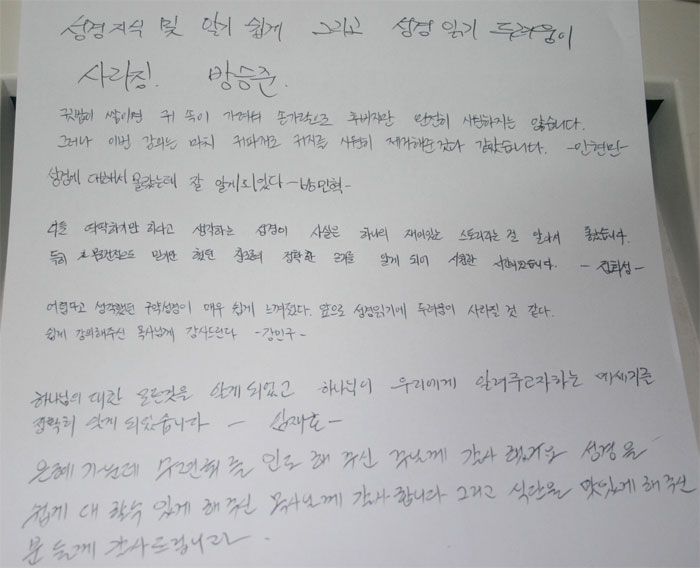 성경지식 및 알기 쉽게 그리고 성경 읽기 두려움이
사라짐. 방승준.
귓밥이 쌓이면 귀 속이 가려워 손가락으로 후비지만 완전히 시원하지는 않습니다.
그러나 이번 강의는 마치 귀파개로 귀지를 시원히 제거해준 것과 같았습니다. -안현민-
성경에 대해서 몰랐는데 잘 알게되었다 -방민혁-
너무 딱딱하지만 하다고 생각하는 성경이 사실은 하나의 재미있는 스토리라는 걸 알아서 좋았습니다.
특히 믿기만 했던 정확한 근거를 알게 되어 시간이었습니다.
어렵다고 생각했던 구약성경이 매우 쉽게 느껴졌다. 앞으로 성경읽기에 두려움이 사라질 것 같다.
쉽게 강의해주신 목사님께 감사드린다 -강민구-
하나님의 대한 모든것을 알게되었고 하나님이 우리에게 알려주고자하는 메세지를
정확히 알게 되었습니다 - 심재호-
은혜 가운데 수련회를 인도해 주신 주님께 감사 했고요 성경을
쉽게 대 할수 있게 해 주신 목사님께 감사합니다 그리고 식단을 맛있게 해주신
분들께 감사드립니다.